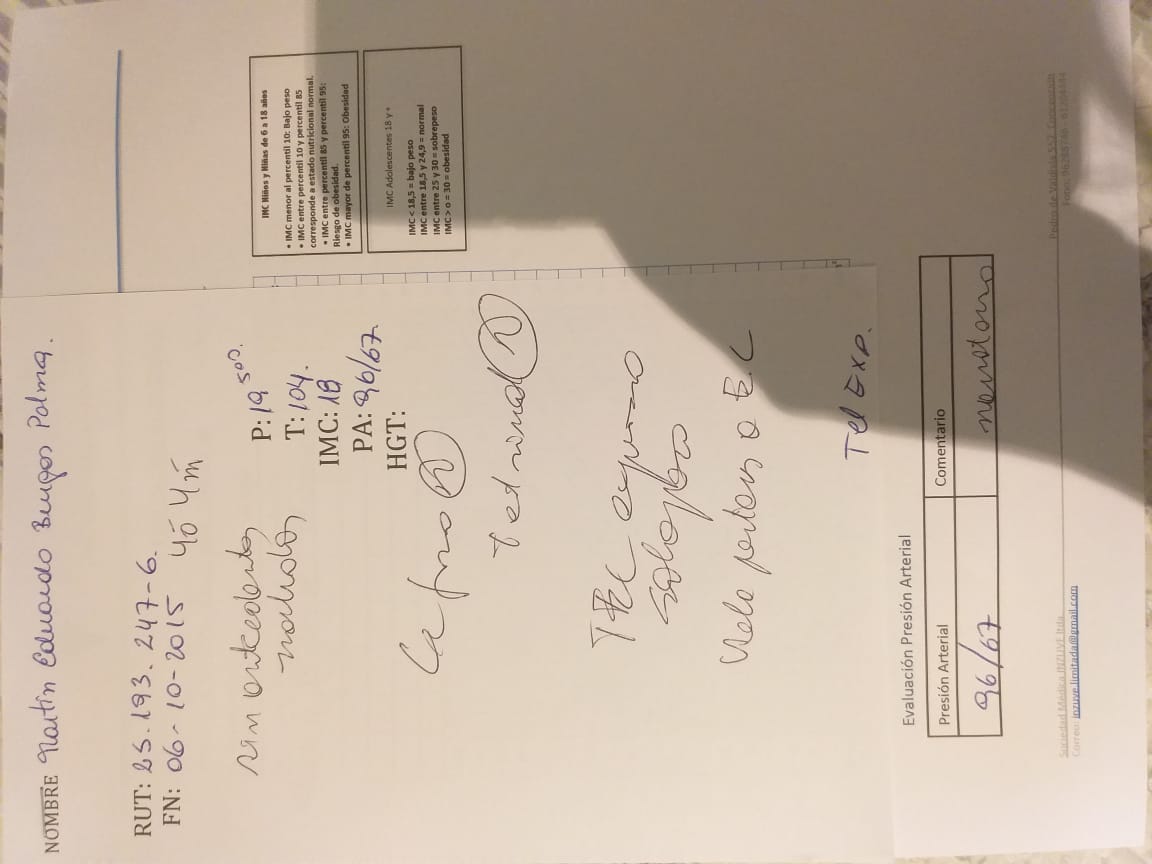 NOMBRE Martín Eduardo Burgos Palma.
RUT: 25.193.247-6.
FN: 06-10-2015 4ō 4m̄
sin antecedentes
P: 19 500.
T: 104.
IMC: 18
PA: 96/67
HGT:
IMC Niños y Niñas de 6 a 18 años
• IMC menor al percentil 10: Bajo peso
• IMC entre percentil 10 y percentil 85
corresponde a estado nutricional normal.
• IMC entre percentil 85 y percentil 95:
Riesgo de obesidad.
• IMC mayor de percentil 95: Obesidad
IMC Adolescentes 18 y +
IMC < 18,5 = bajo peso
IMC entre 18,5 y 24,9 = normal
IMC entre 25 y 30 = sobrepeso
IMC > o = 30 = obesidad
N
N
a E.C
Tel Exp.
Evaluación Presión Arterial
Presión Arterial Comentario
96/67
Sociedad Médica INZUVE ltda.
Correo: inzuve.limitada@gmail.com
Pedro de Valdivia 552, Concepción